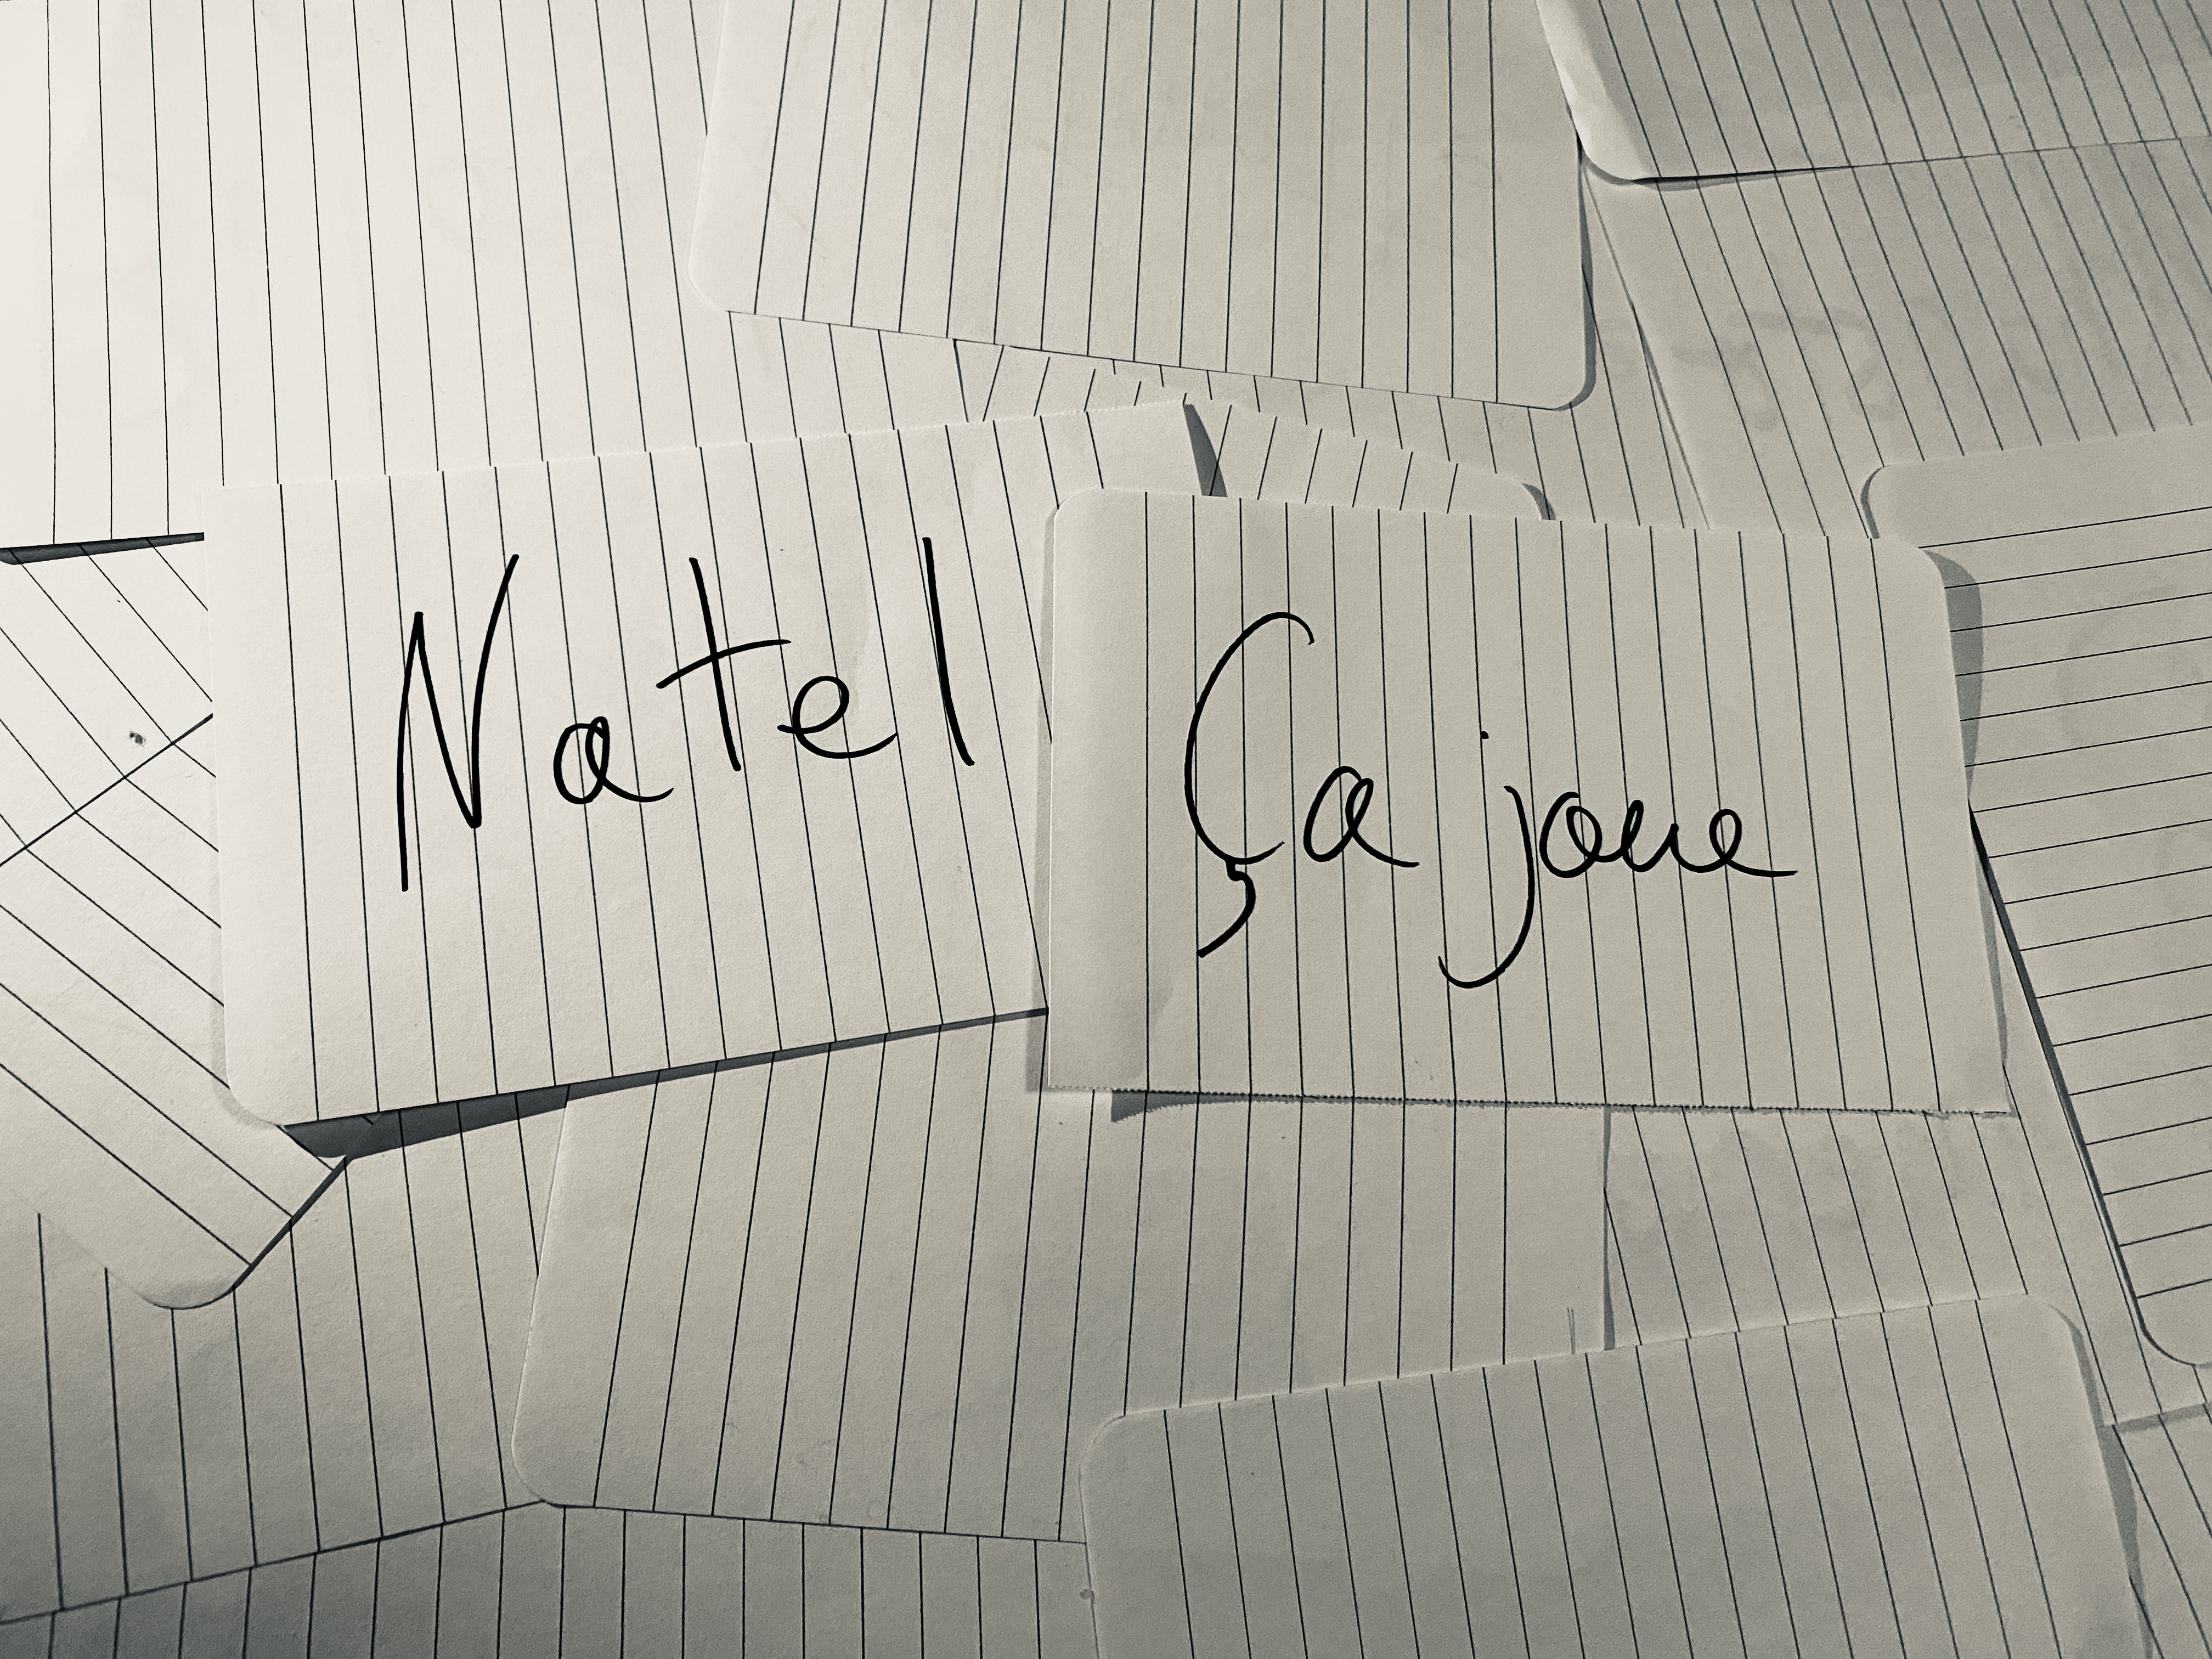 Natel
Ça joue